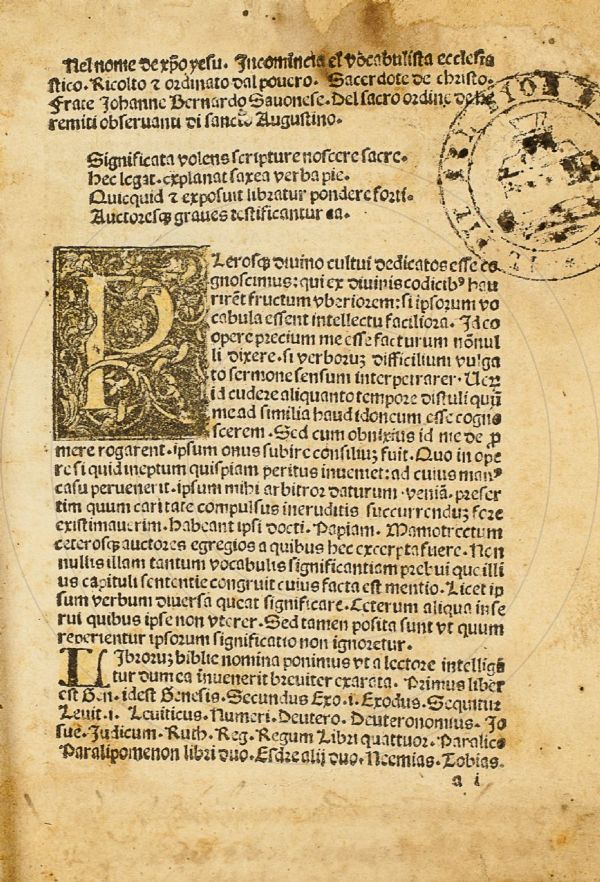 Nel nome de xp̄o yesu. Incomincia el vocabulista ecclesia
stico. Ricolto ⁊ ordinato dal pouero. Sacerdote de christo.
Frate Johanne Bernardo Sauonese. Del sacro ordine de he
remiti obseruanti di sancto Augustino.
Significata volens scripture noscere sacre.
Hec legat. explanat saxea verba pie.
Quicquid ⁊ exposuit libratur pondere forti.
Auctoresqꝫ graues testificantur ea.
PLerosqꝫ diuino cultui dedicatos esse co
gnoscimus: qui ex diuinis codicibꝰ hau
rirēt fructum vberiorem: si ipsorum vo
cabula essent intellectu faciliora. Id co
opere precium me esse facturum nōnul
li dixere. si verboruꝫ difficilium vulga
to sermone sensum interpetrarer. Ueꝝ
id cudere aliquanto tempore distuli quū
me ad similia haud idoneum esse cogno
scerem. Sed cum obnixius id me de ꝓ
mere rogarent. ipsum onus subire consiliuꝫ fuit. Quo in ope
re si quid ineptum quispiam peritus inueniet: ad cuius manꝰ
casu peruenerit. ipsum mihi arbitror daturum veniā. preser
tim quum caritate compulsus ineruditis succurrenduꝫ fore
existimauerim. Habeant ipsi docti. Papiam. Mamotrectum
ceterosqꝫ auctores egregios a quibus hec excerpta fuere. Non
nullis illam tantum vocabulis significantiam prebui que illi
us capituli sententie congruit cuius facta est mentio. Licet ip
sum verbum diuersa queat significare. Ceterum aliqua inse
rui quibus ipse non vterer. Sed tamen posita sunt vt quum
reperientur ipsorum significatio non ignoretur.
LIbroruꝫ biblie nomina ponimus vt a lectore intelligā
tur dum ea inuenerit breuiter exarata. Primus liber
est Gen. idest Genesis. Secundus Exo. i. Exodus. Sequitur
Leuit. i. Leuiticus. Numeri. Deutero. Deuteronomius. Jo
sue. Judicum. Ruth. Reg. Regum Libri quattuor. Paralic.
Paralipomenon libri duo. Esdre alij duo. Neemias. Tobias.
a i